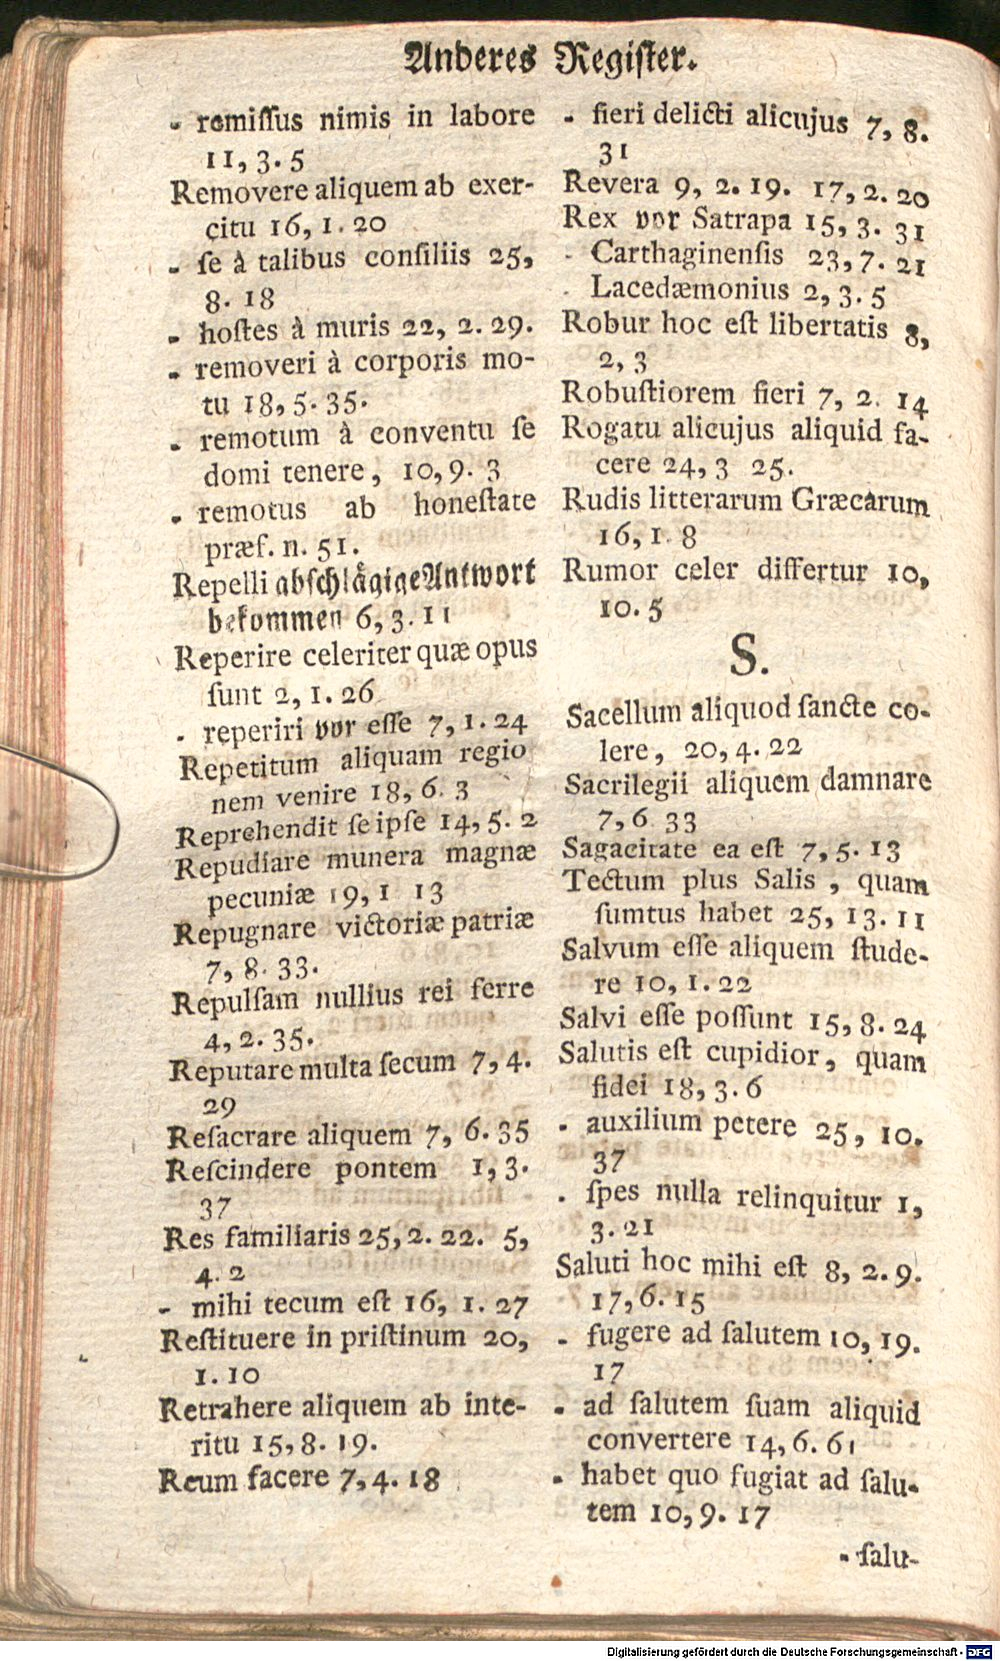 Anderes Register.
- remiſſus nimis in labore
11, 3. 5
Removere aliquem ab exer-
citu 16, 1. 20
- ſe à talibus conſiliis 25,
8. 18
- hoſtes à muris 22, 2. 29.
- removeri à corporis mo-
tu 18, 5. 35.
- remotum à conventu ſe
domi tenere, 10, 9. 3
- remotus ab honeſtate
præf. n. 51.
Repelli abſchlägige Antwort
bekommen 6, 3. 11
Reperire celeriter quæ opus
ſunt 2, 1. 26
- reperiri vor eſſe 7, 1. 24
Repetitum aliquam regio
nem venire 18, 6. 3
Reprehendit ſe ipſe 14, 5. 2
Repudiare munera magnæ
pecuniæ 19, 1 13
Repugnare victoriæ patriæ
7, 8. 33.
Repulſam nullius rei ferre
4, 2. 35.
Reputare multa ſecum 7, 4.
29
Reſacrare aliquem 7, 6. 35
Reſcindere pontem 1, 3.
37
Res familiaris 25, 2. 22. 5,
4. 2
- mihi tecum eſt 16, 1. 27
Reſtituere in priſtinum 20,
1. 10
Retrahere aliquem ab inte-
ritu 15, 8. 19.
Reum facere 7, 4. 18
- fieri delicti alicujus 7, 8.
31
Revera 9, 2. 19. 17, 2. 20
Rex vor Satrapa 15, 3. 31
- Carthaginenſis 23, 7. 21
- Lacedæmonius 2, 3. 5
Robur hoc eſt libertatis 8,
2, 3
Robuſtiorem fieri 7, 2. 14
Rogatu alicujus aliquid fa-
cere 24, 3 25.
Rudis litterarum Græcarum
16, 1. 8
Rumor celer differtur 10,
10. 5
S.
Sacellum aliquod ſancte co-
lere, 20, 4. 22
Sacrilegii aliquem damnare
7, 6 33
Sagacitate ea eſt 7, 5. 13
Tectum plus Salis, quam
ſumtus habet 25, 13. 11
Salvum eſſe aliquem ſtude-
re 10, 1. 22
Salvi eſſe poſſunt 15, 8. 24
Salutis eſt cupidior, quam
fidei 18, 3. 6
- auxilium petere 25, 10.
37
- ſpes nulla relinquitur 1,
3. 21
Saluti hoc mihi eſt 8, 2. 9.
17, 6. 15
- fugere ad ſalutem 10, 19.
17
- ad ſalutem ſuam aliquid
convertere 14, 6. 61
- habet quo fugiat ad ſalu-
tem 10, 9. 17
- ſalu-
Digitalisierung gefördert durch die Deutsche Forschungsgemeinschaft - DFG